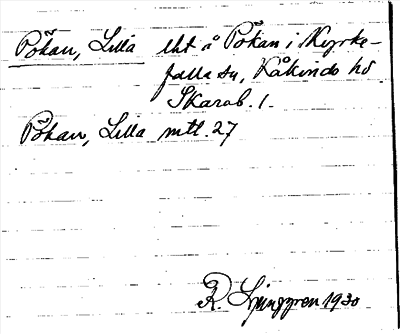 Pökan, Lilla lht å Pökan i Kyrke-
falla sn, Kåkinds hd
Skarab. l.
Pökan, Lilla mtl. 27
R. Ljunggren 1930